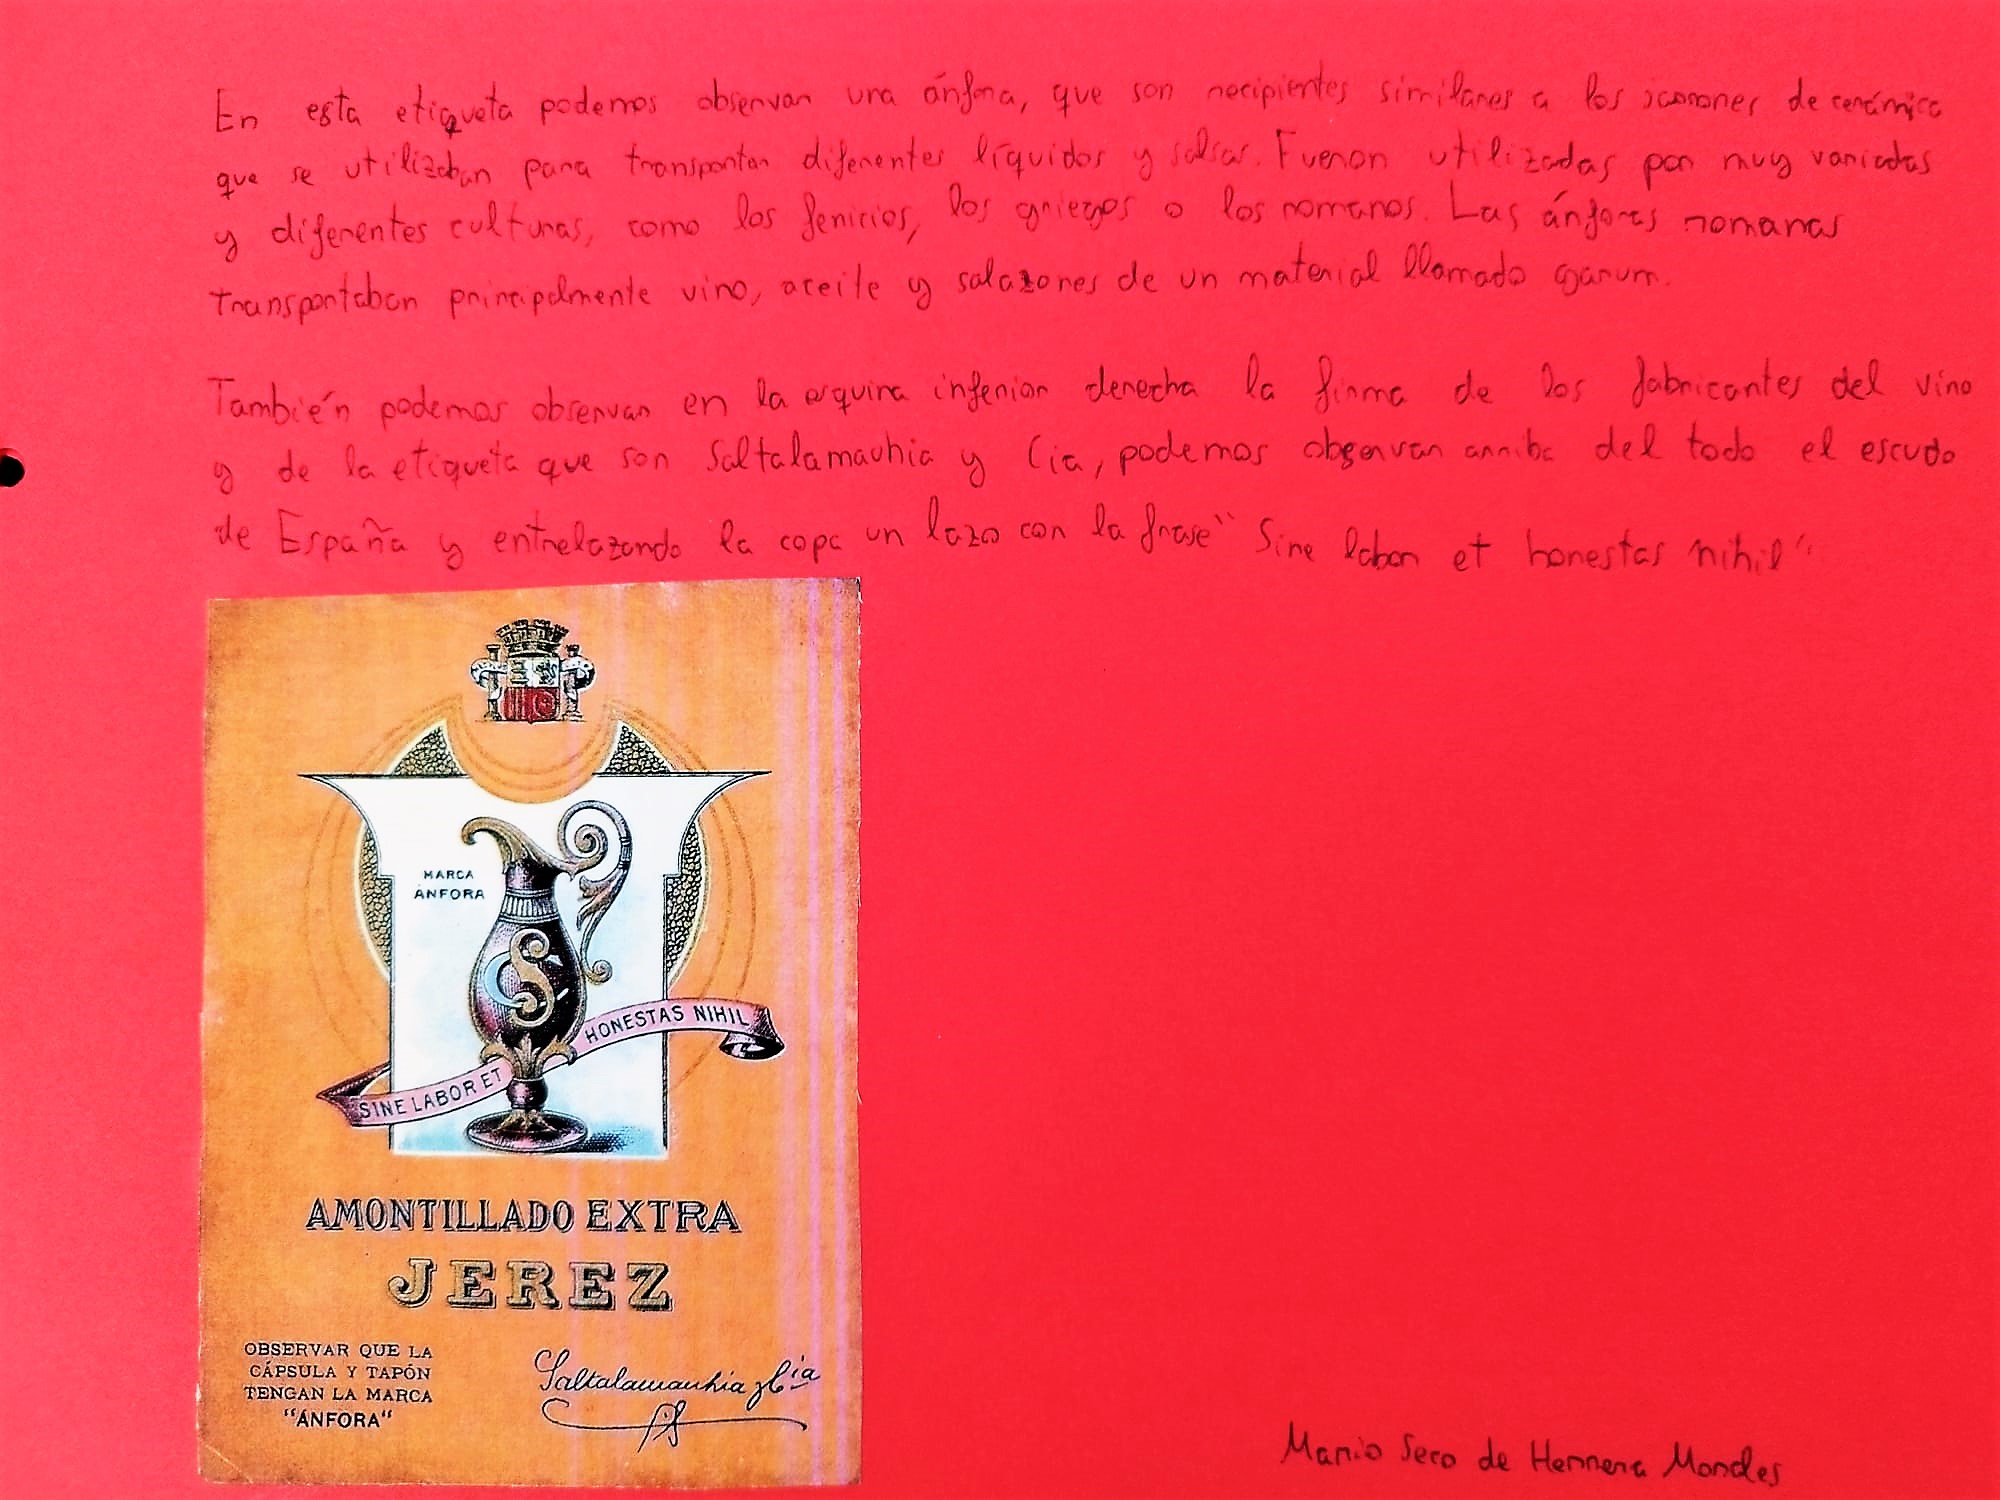 En esta etiqueta podemos observar una ánfora, que son recipientes similares a los jarrones de cerámica
que se utilizaban para transportar diferentes líquidos y salsas. Fueron utilizadas por muy variadas
y diferentes culturas, como los fenicios, los griegos o los romanos. Las ánforas romanas
transportaban principalmente vino, aceite y salazones de un material llamado garum.
También podemos observar en la esquina inferior derecha la firma de los fabricantes del vino
y de la etiqueta que son Saltalamauhia y Cia, podemos observar arriba del todo el escudo
de España y entrelazando la copa un lazo con la frase "Sine labor et honestas nihil"
MARCA
ÁNFORA
CS
SINE LABOR ET HONESTAS NIHIL
AMONTILLADO EXTRA
JEREZ
OBSERVAR QUE LA
CÁPSULA Y TAPÓN
TENGAN LA MARCA
"ÁNFORA"
Saltalamauhia y Cia
Mario Seco de Herrera Morales